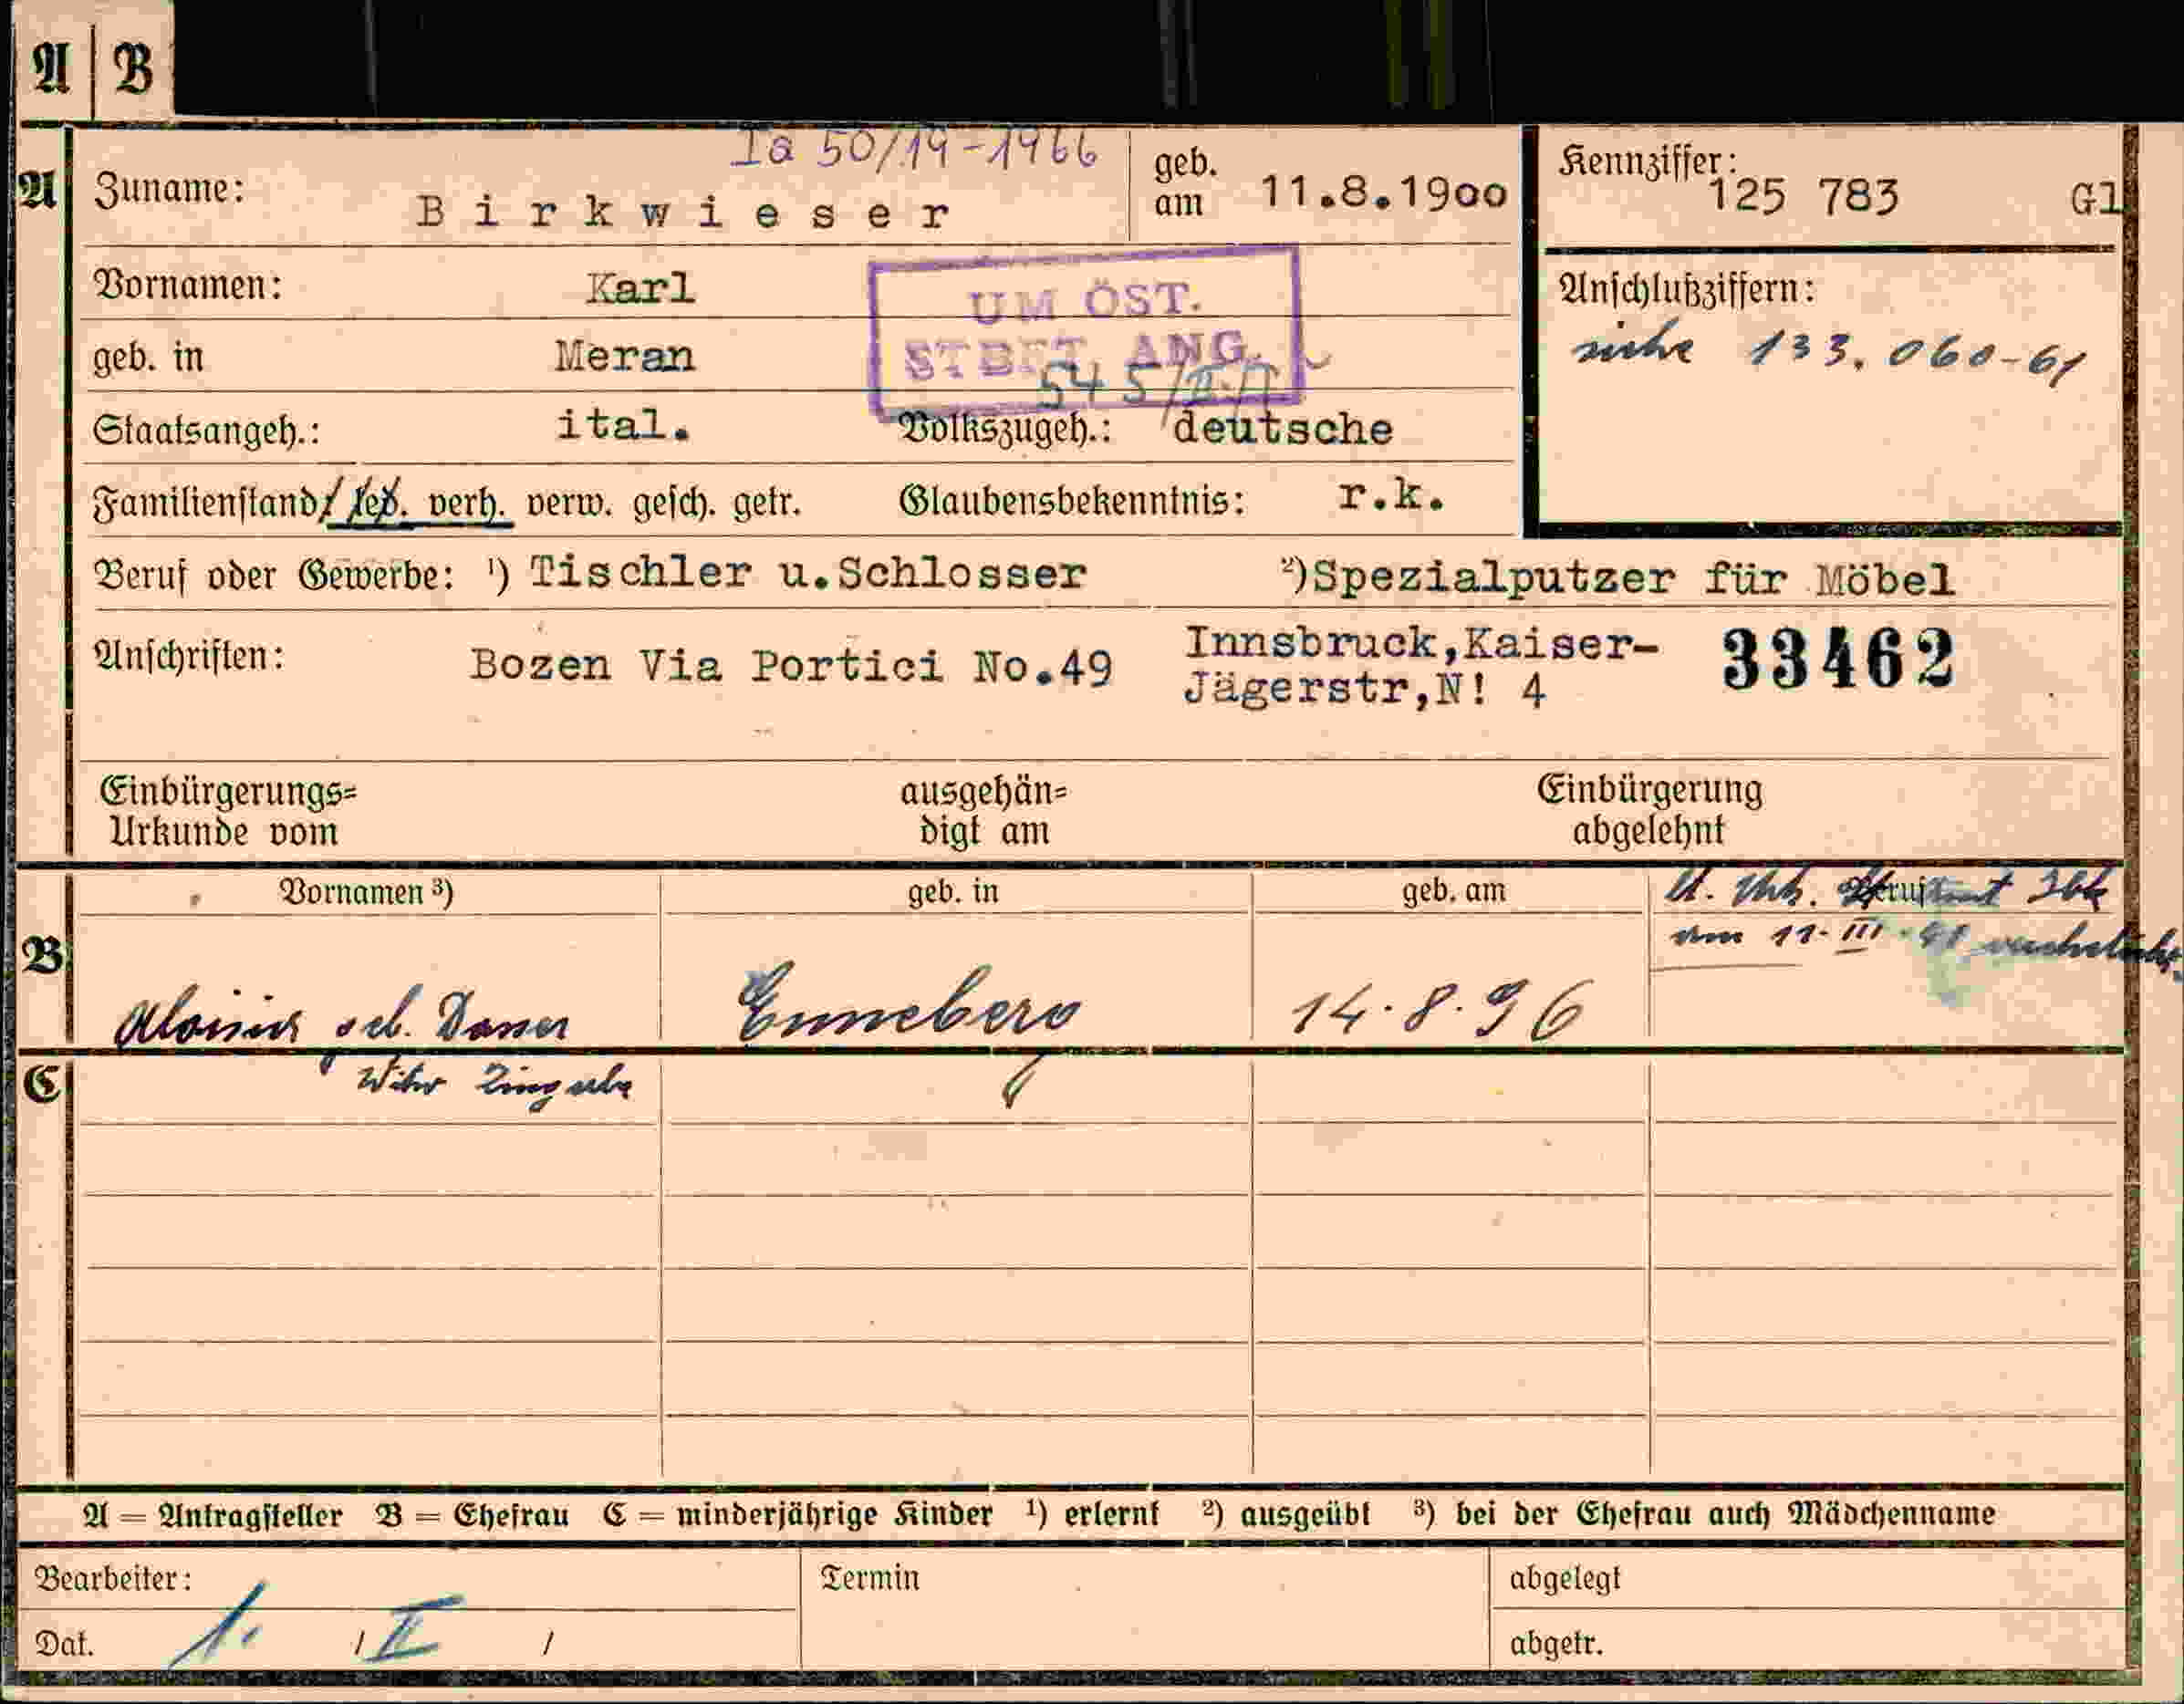 A | B
Ia 50/19-1966
A Zuname: Birkwieser geb. am 11.8.1900
Kennziffer: 125 783 Gl
Vornamen: Karl
UM ÖST.
STBFT. ANG.
545/II.
Anschlußziffern:
siehe 133.060-61
geb. in Meran
Staatsangeh.: ital. Volkszugeh.: deutsche
Familienstand/ led. verh. verw. gesch. getr. Glaubensbekenntnis: r.k.
Beruf oder Gewerbe: ¹) Tischler u.Schlosser ²)Spezialputzer für Möbel
Anschriften: Bozen Via Portici No.49 Innsbruck,Kaiser-
Jägerstr,N! 4
33462
Einbürgerungs=
Urkunde vom
ausgehän=
digt am
Einbürgerung
abgelehnt
Vornamen ³) geb. in geb. am Beruf
vom 11-III-41
B Aloisia geb. Enneberg 14.8.96
C Witw
A = Antragsteller B = Ehefrau C = minderjährige Kinder ¹) erlernt ²) ausgeübt ³) bei der Ehefrau auch Mädchenname
Bearbeiter: Termin abgelegt
Dat. 1. / II / abgetr.